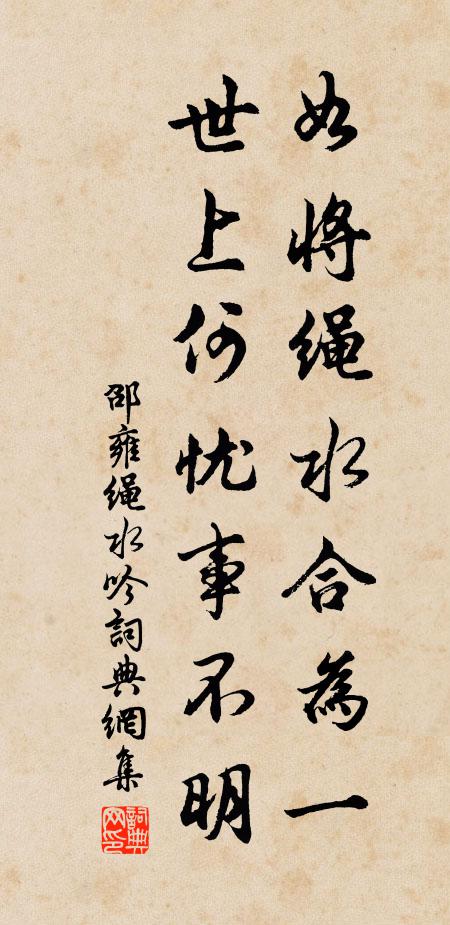 如将绳水合为一
世上何忧事不明
邵雍绳水吟詞典網集
詞典网印